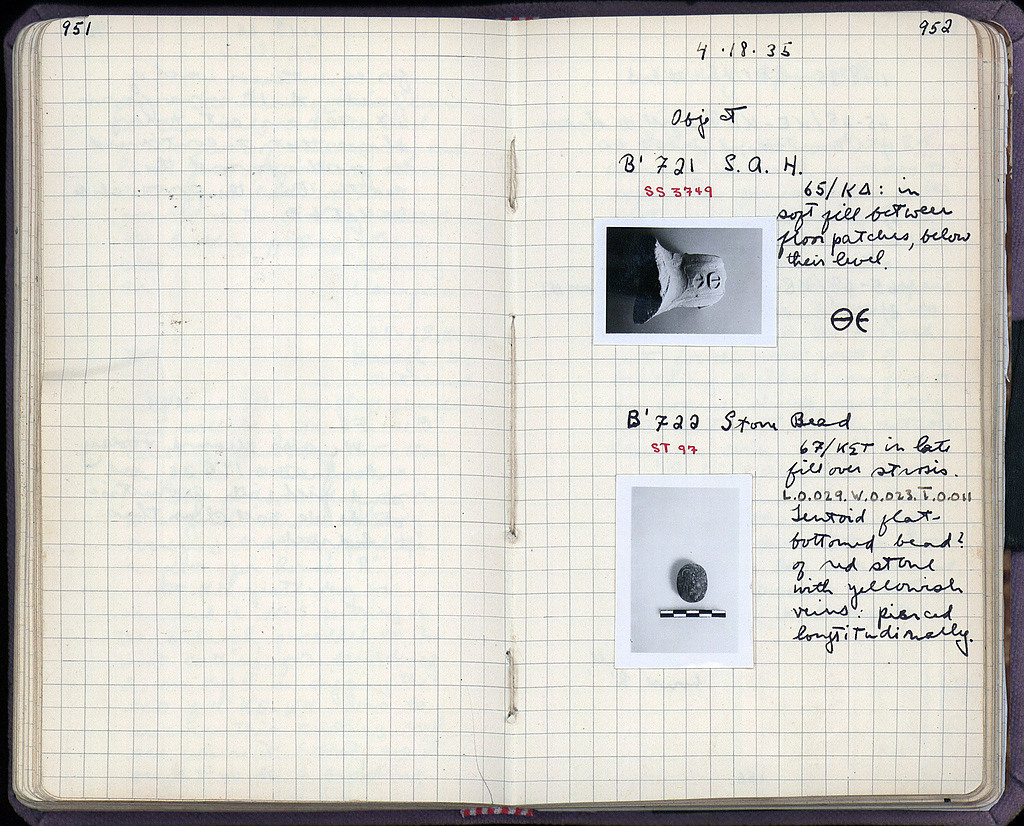 951
952
4·18·35
Object
B' 721 S. A. H.
SS 3749
65/ΚΔ: in
soft fill between
floor patches, below
their level.
ΘΕ
ΘΕ
B' 722 Stone Bead
ST 97
67/ΚΣΤ in late
fill over strosis.
L.0.029. W.0.023. T.0.011
Lentoid flat-
bottomed bead?
of red stone
with yellowish
veins: pierced
longtitudinally.